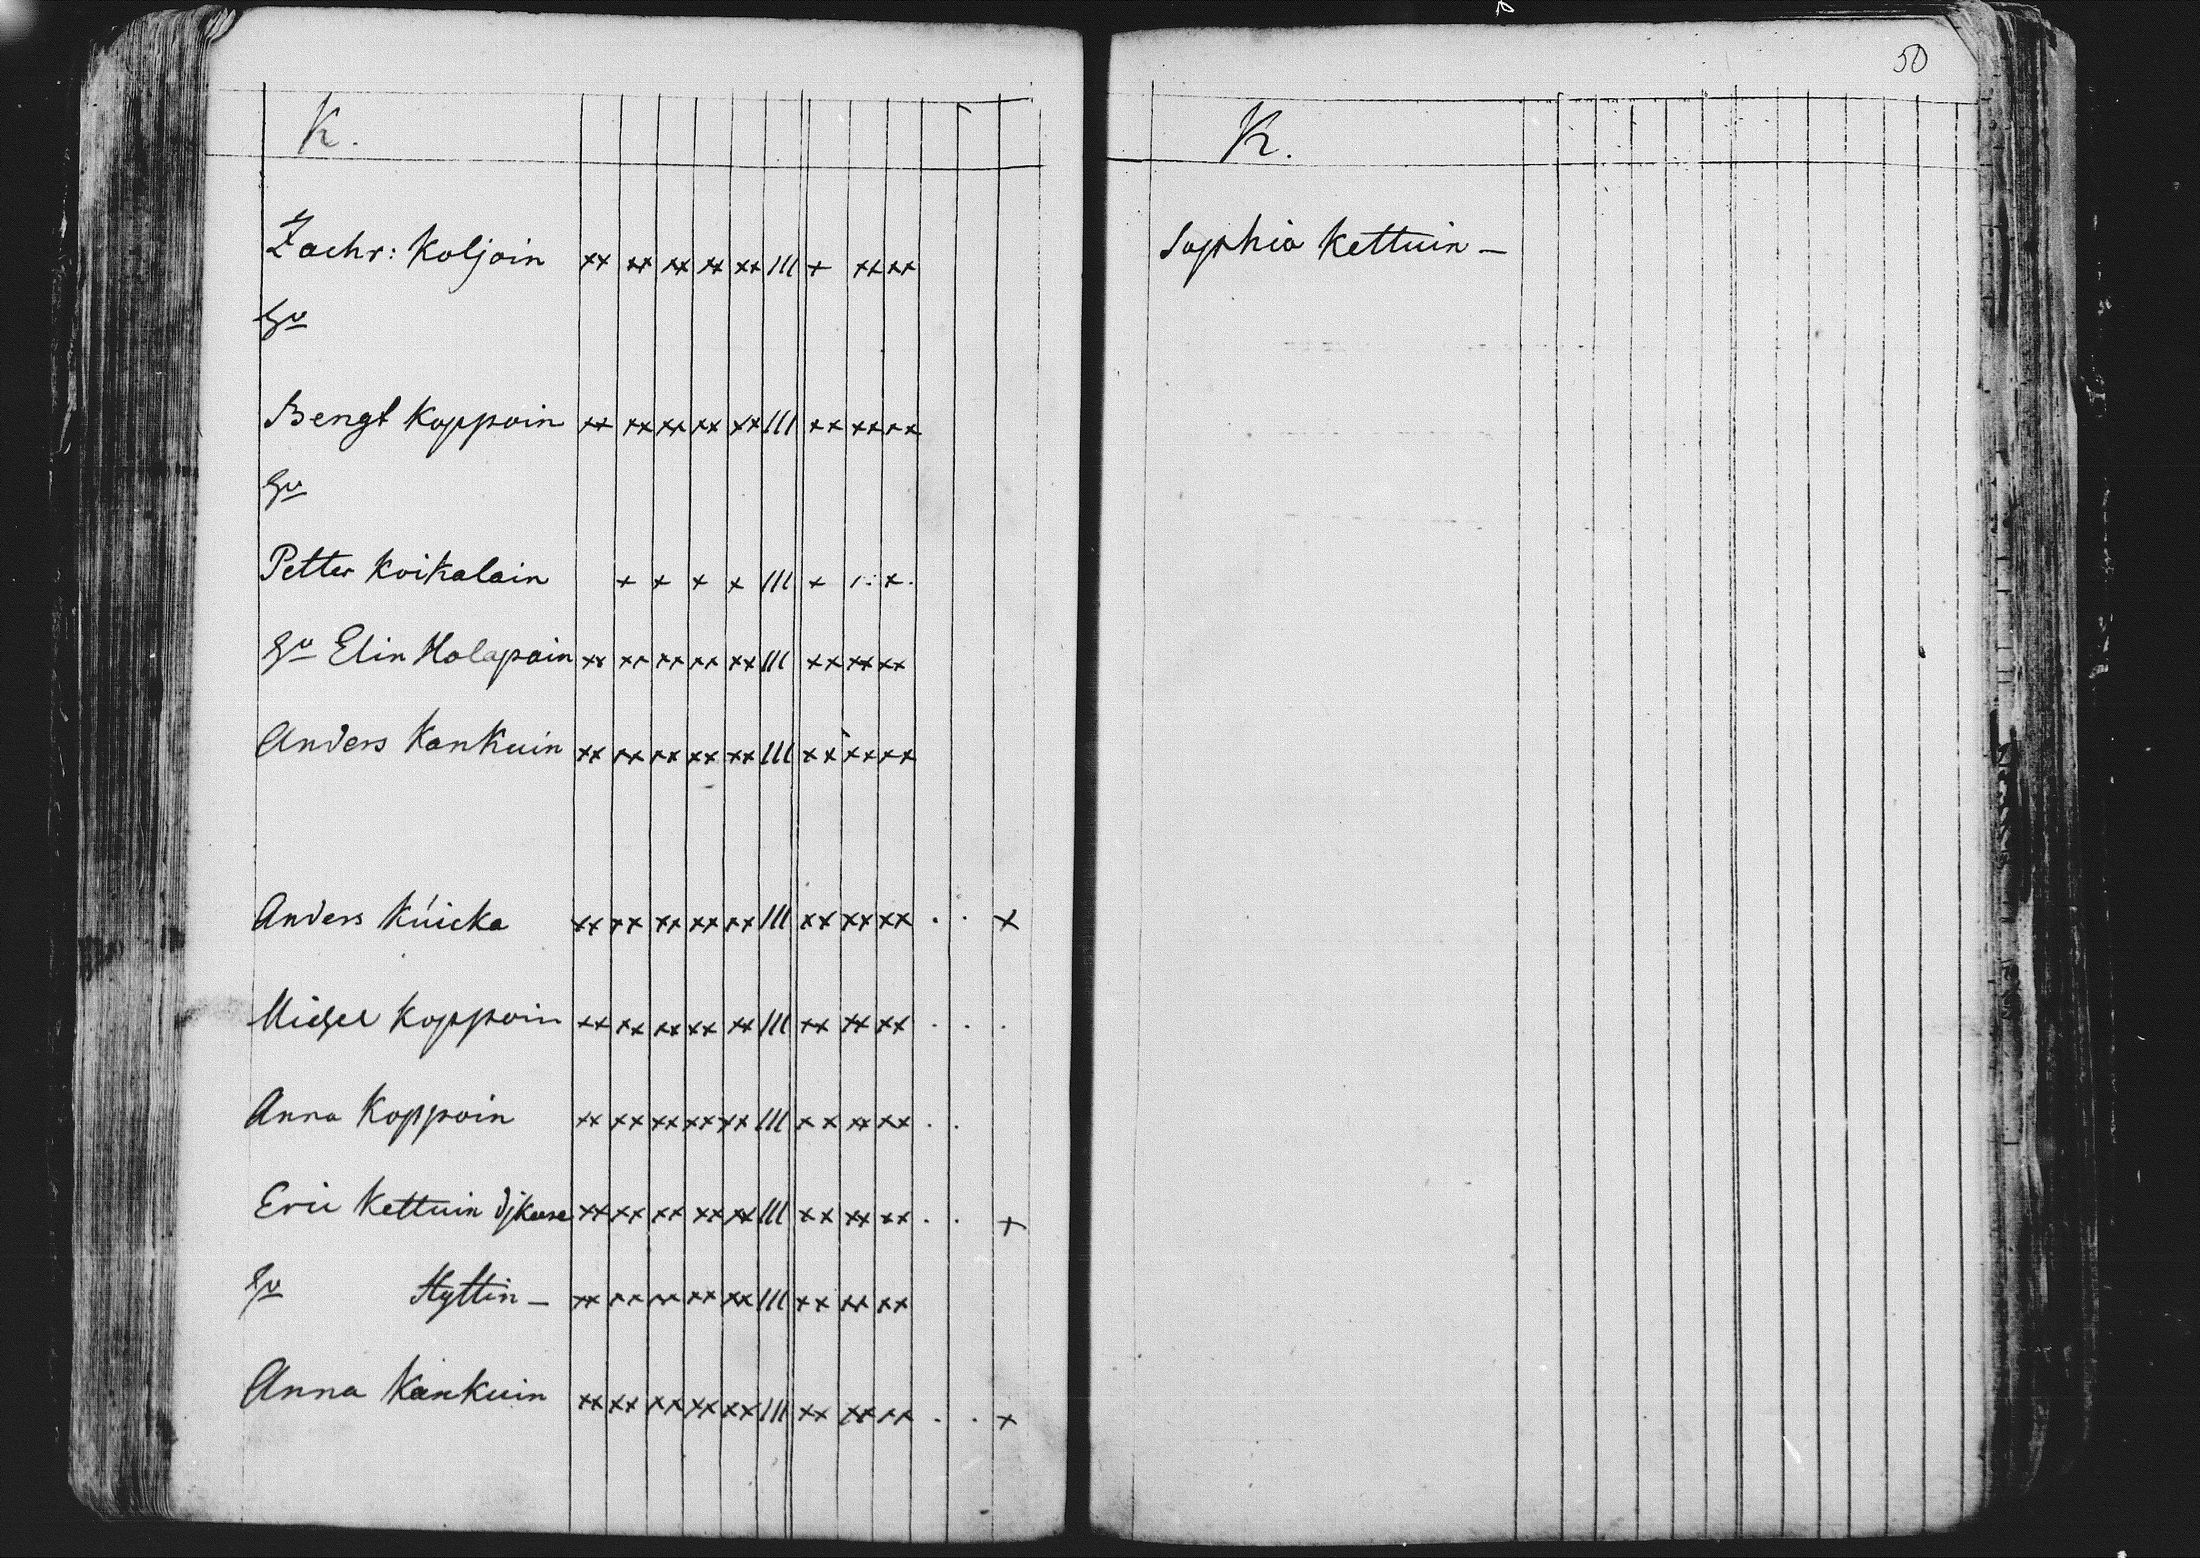 K.
Zachr: Koljoin xx xx xx xx xx III + xx xx
Hu
Bengt Koppoin xx xx xx xx xx III xx xx xx
Hu
Petter Koikalain + + + + III + x
Hu Elin Holapain xx xx xx xx xx III xx xx xx
Anders Kankuin xx xx xx xx xx III xx xx xx
Anders Kuicka xx xx xx xx xx III xx xx xx . . x
Michel Koppoin xx xx xx xx xx III xx xx xx . . .
Anna Koppoin xx xx xx xx xx III xx xx xx . .
Eric Kettuin xx xx xx xx xx III xx xx xx . . +
Hu Hyttin - xx xx xx xx xx III xx xx xx
Anna Kankuin xx xx xx xx xx III xx xx xx . . x
50
K.
Sophia Kettuin -